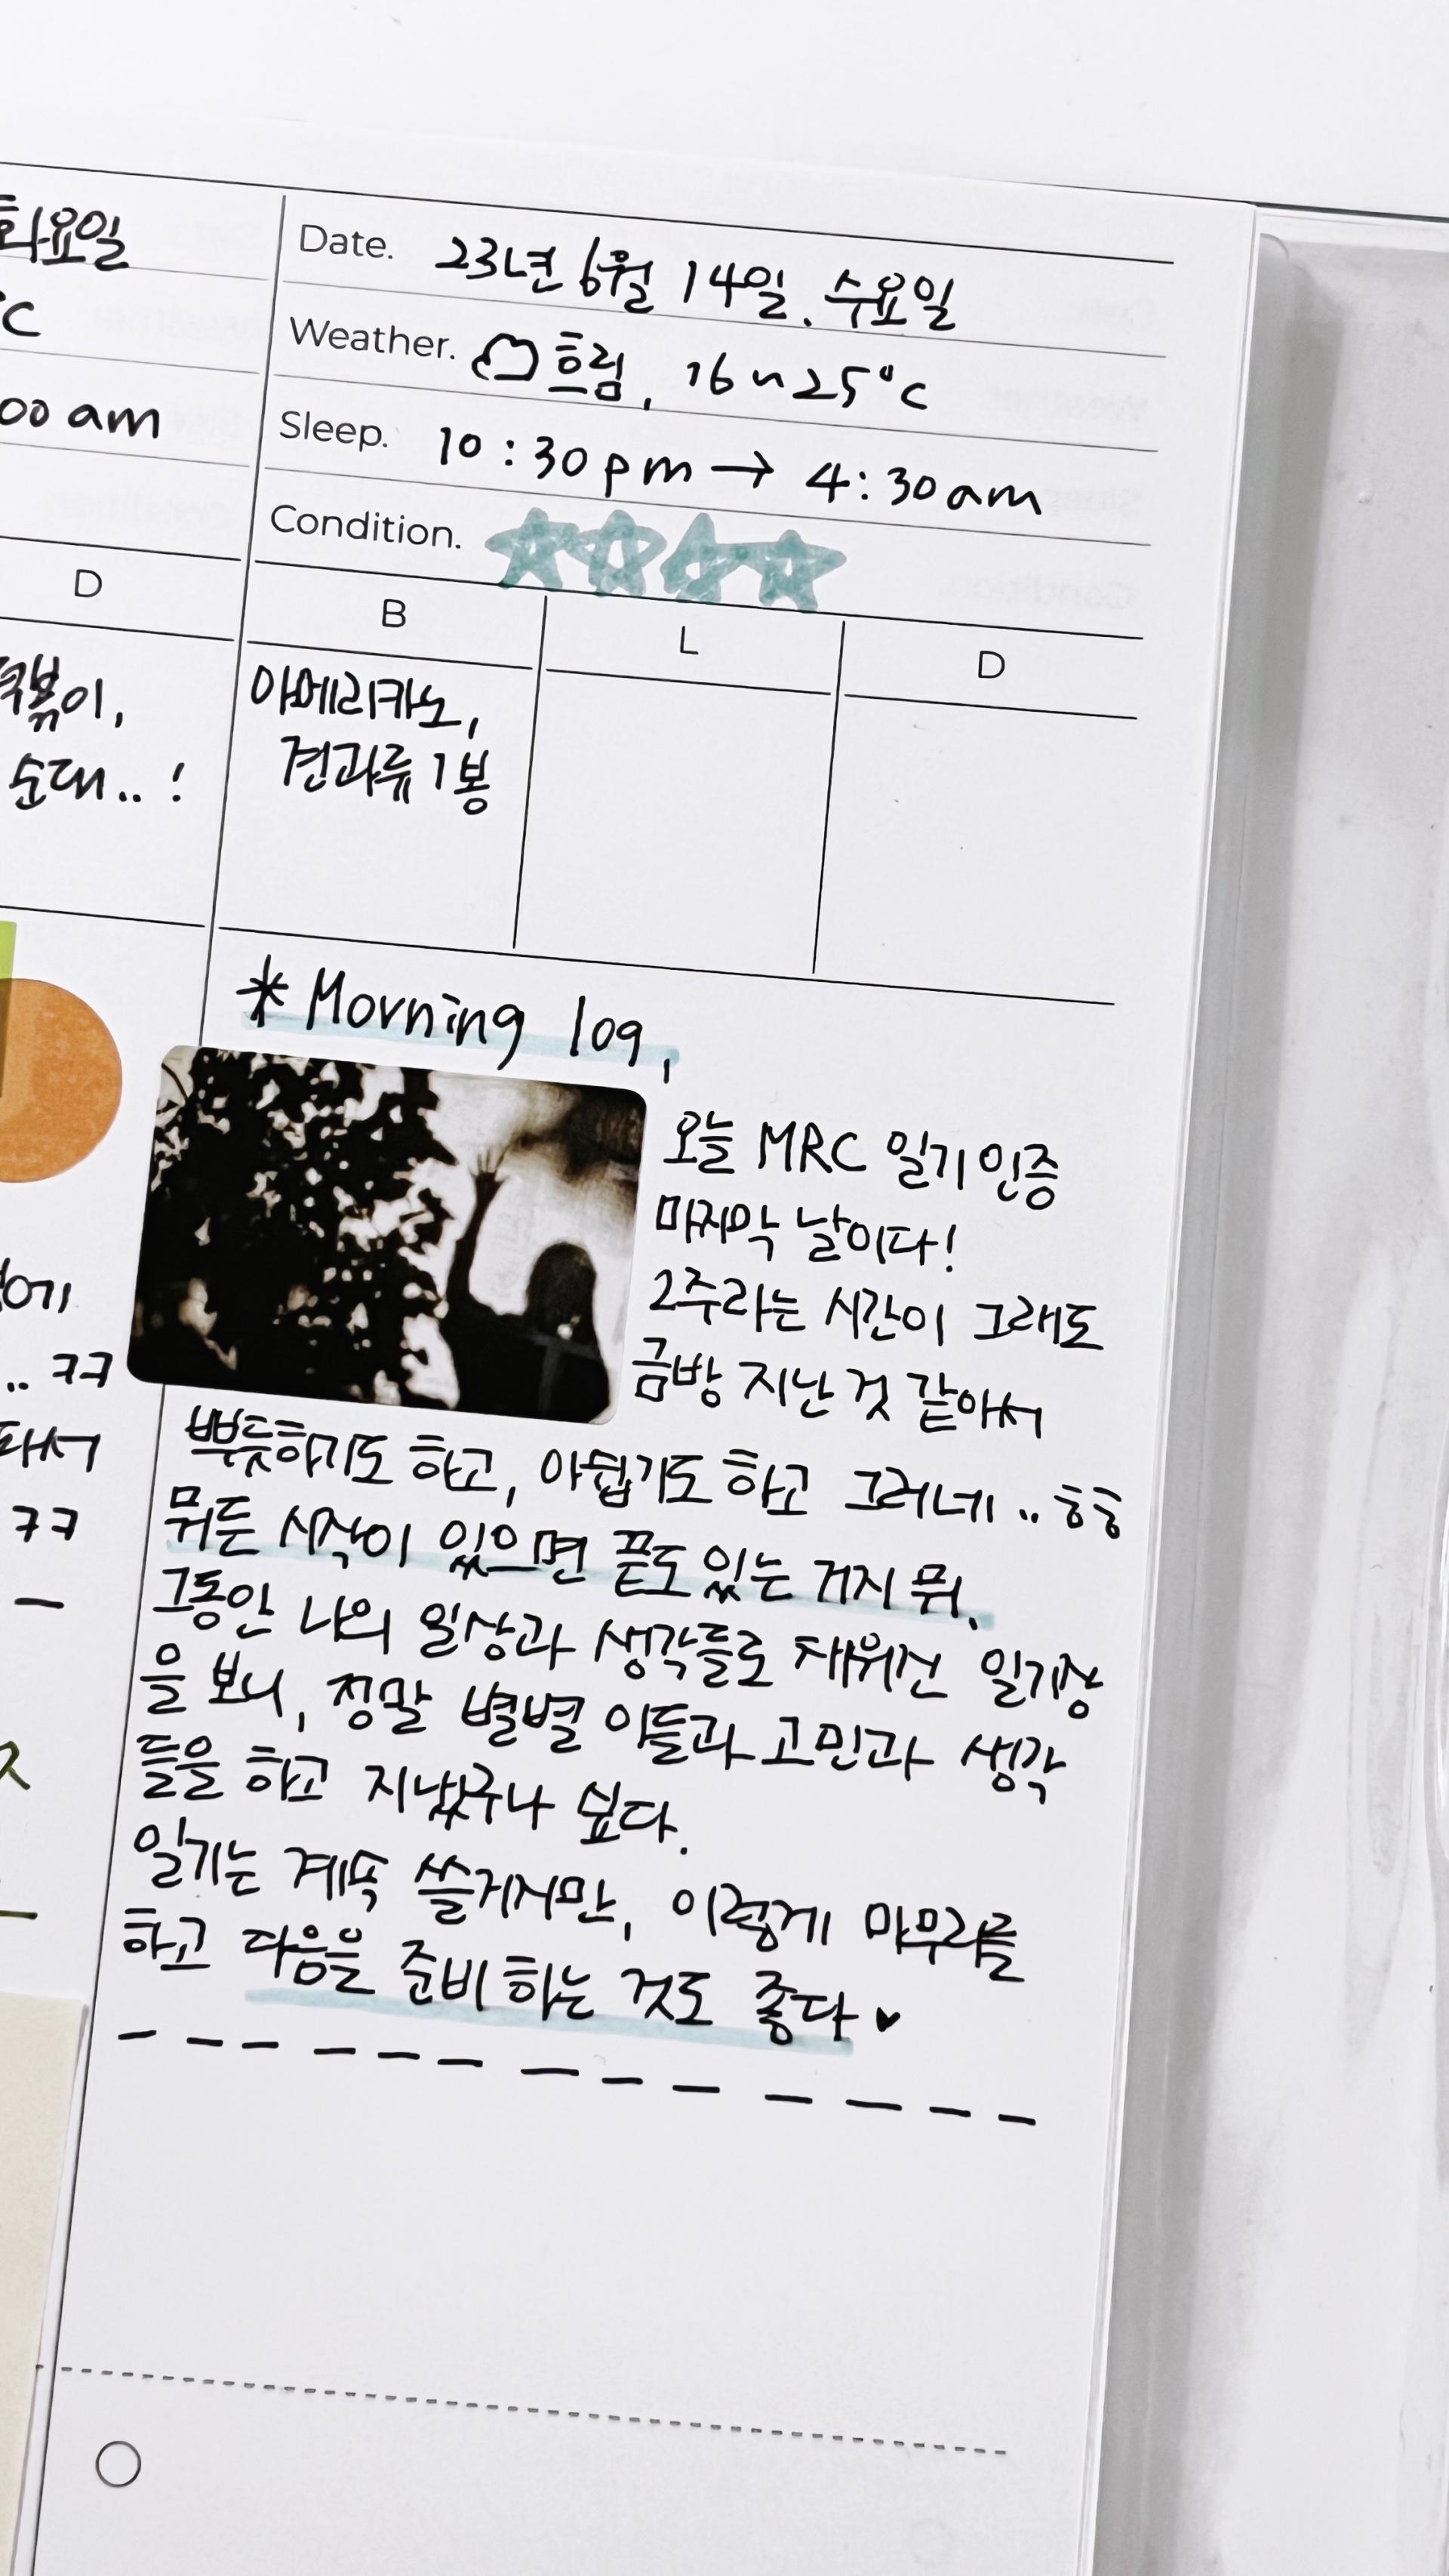 화요일
C
00 am
D
볶이,
순대..!
.. ㅋㅋ
ㅋㅋ
Date. 23년 6월 14일. 수요일
Weather. 흐림, 16~25°C
Sleep. 10:30pm → 4:30am
Condition.
B L D
아메리카노,
견과류 1봉
* Morning log,
오늘 MRC 일기 인증
마지막 날이다!
2주라는 시간이 그래도
금방 지난 것 같아서
뿌듯하기도 하고, 아쉽기도 하고 그러네.. ㅎㅎ
뭐든 시작이 있으면 끝도 있는 거지 뭐.
그동안 나의 일상과 생각들로 채워진 일기장
을 보니, 정말 별별 일들과 고민과 생각
들을 하고 지냈구나 싶다.
일기는 계속 쓸거지만, 이렇게 마무리를
하고 다음을 준비하는 것도 좋다♥